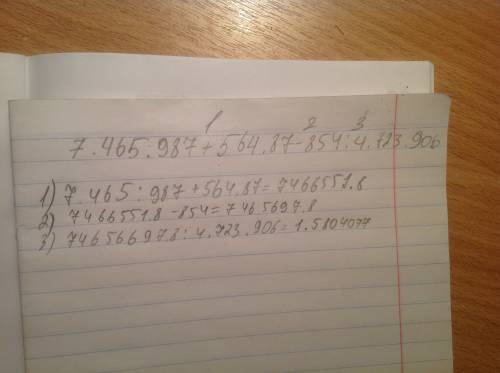 1 2 3
7.465:987+564.87-854:4.723.906
1) 7.465:987+564.87=7466551.8
2) 7466551.8-854=7465697.8
3) 746566978:4.723.906=1.5804077